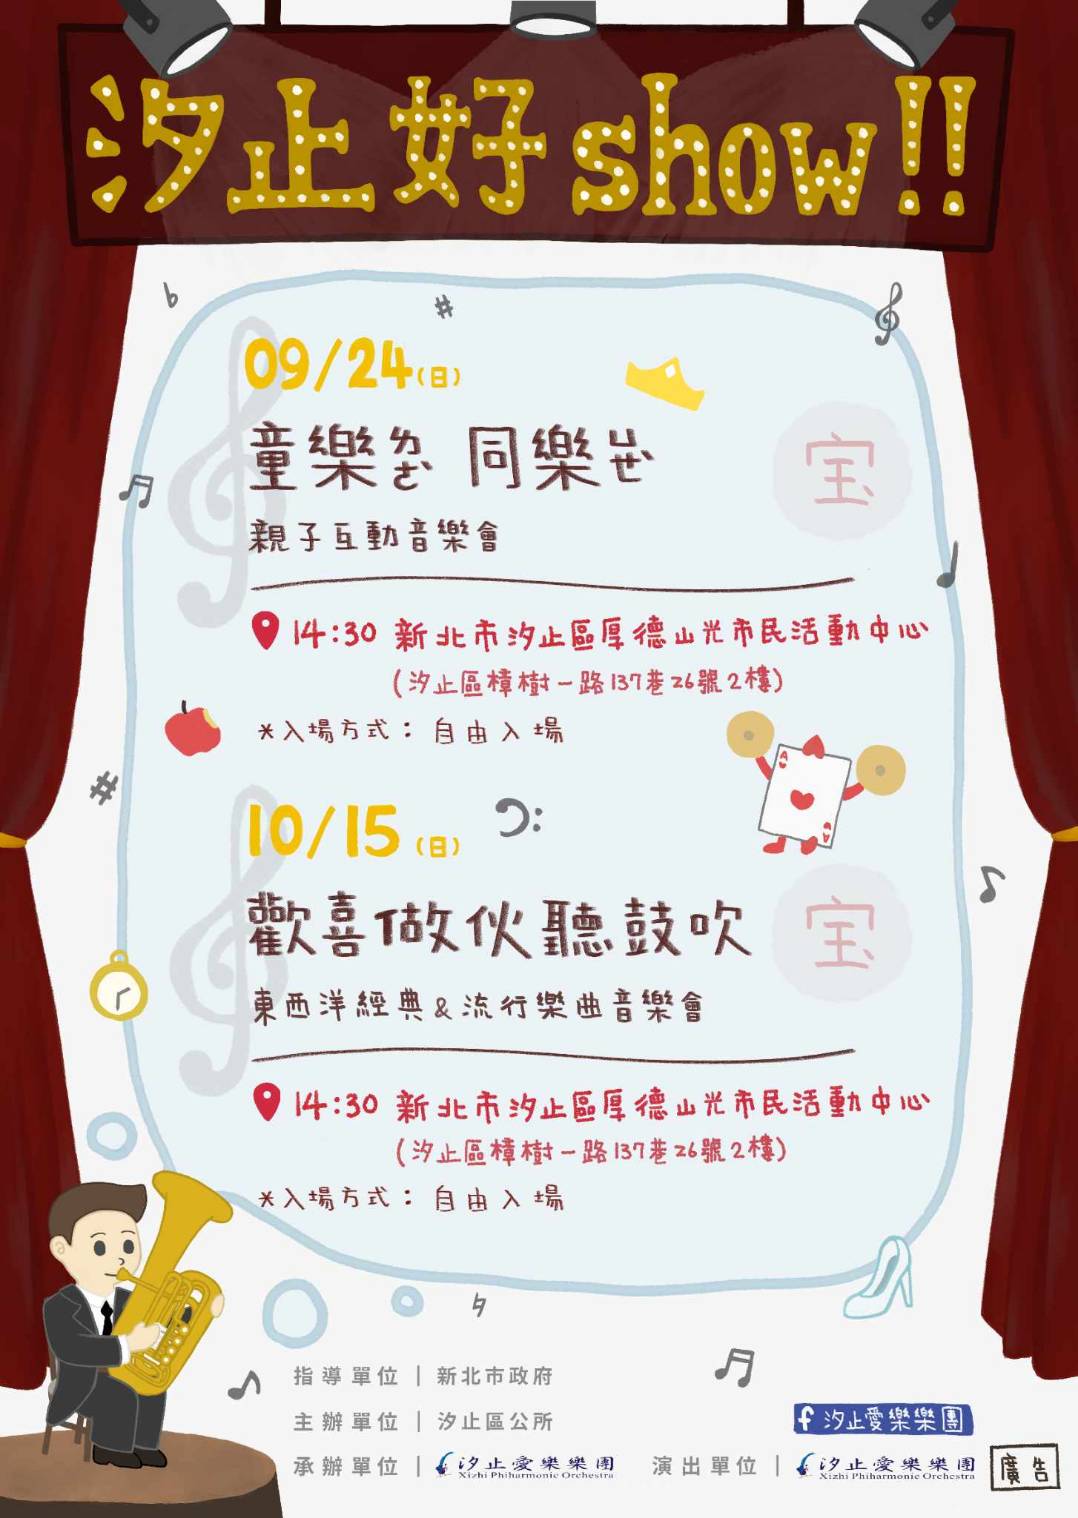 汐止好show!!
09/24(日)
童樂ㄌㄜˋ 同樂ㄩㄝˋ
宝
親子互動音樂會
14:30 新北市汐止區厚德山光市民活動中心
(汐止區樟樹一路137巷26號2樓)
*入場方式：自由入場
10/15(日)
歡喜做伙聽鼓吹
宝
東西洋經典&流行樂曲音樂會
14:30 新北市汐止區厚德山光市民活動中心
(汐止區樟樹一路137巷26號2樓)
*入場方式：自由入場
指導單位｜新北市政府
主辦單位｜汐止區公所
f 汐止愛樂樂團
承辦單位｜汐止愛樂樂團
Xizhi Philharmonic Orchestra
演出單位｜汐止愛樂樂團
Xizhi Philharmonic Orchestra
廣告